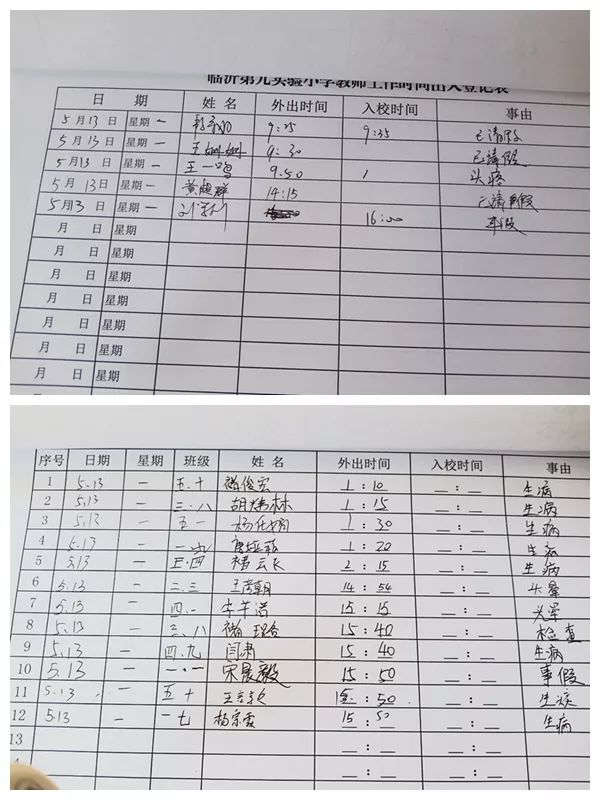 临沂第九实验小学教师工作时间出入登记表
日 期 姓 名 外出时间 入校时间 事由
5月13日 星期一 9:25 9:35 已请假
5月13日 星期一 王姗姗 9:30 已请假
5月13日 星期一 王一鸣 9:50 头疼
5月13日 星期一 黄超群 14:15 已请事假
5月3日 星期一 16:00 事假
月 日 星期
月 日 星期
月 日 星期
月 日 星期
月 日 星期
月 日 星期
月 日 星期
序号 日期 星期 班级 姓 名 外出时间 入校时间 事由
1 5.13 一 五.十 褚俊宏 1:10 : 生病
2 5.13 一 三.八 胡炜林 1:15 : 生病
3 5.13 一 五一 1:30 : 生病
4 5.13 一 1:20 : 生病
5 5.13 一 五.四 褚云长 2:15 : 生病
6 5.13 一 二.三 14:54 : 头晕
7 5.13 一 四.一 15:15 : 头晕
8 5.13 一 三.八 15:40 : 检查
9 5.13 一 四.九 闫肃 15:40 : 生病
10 5.13 一 一.一 宋晨毅 15:50 : 事假
11 5.13 一 五十 :50 :
12 5.13 一 一七 杨宗霖 15:50 : 生病
13 : :
: :